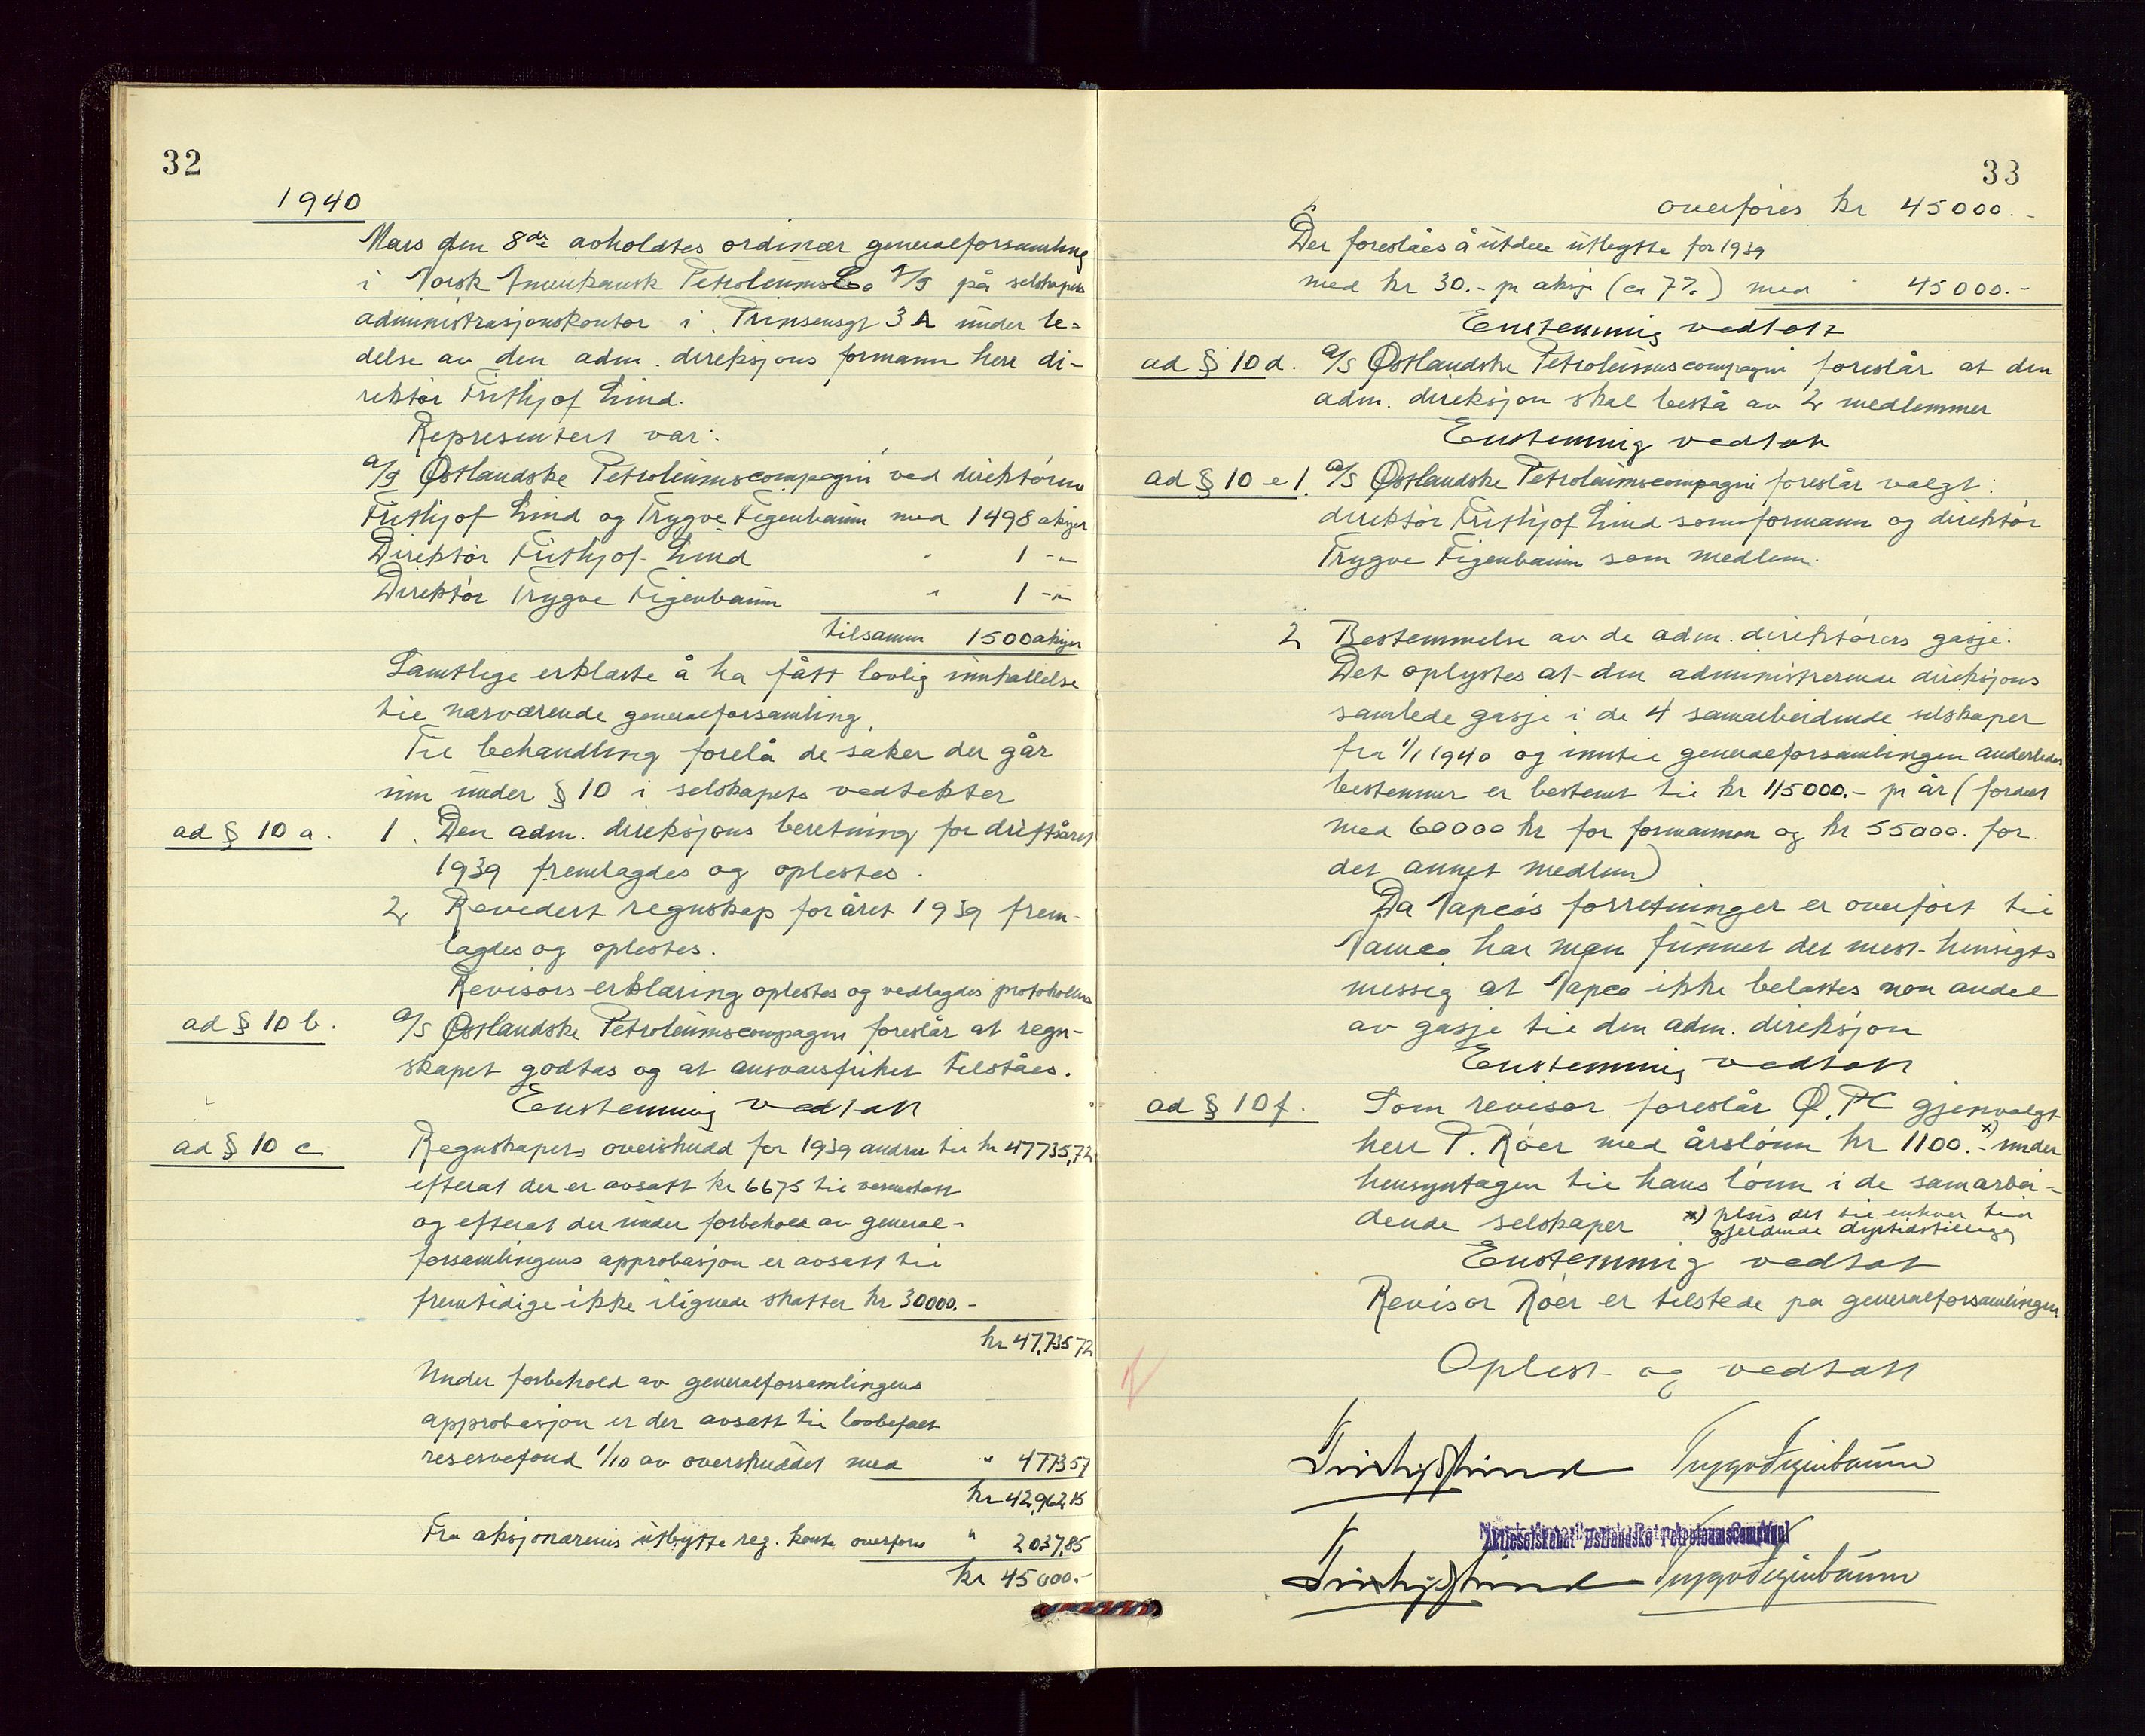 32
1940
Mars den 8de avholdtes ordinær generalforsamling
i Norsk Amerikansk PetroleumsCo A/S på selskapets
administrasjonskontor i Prinsensgt 3A under le-
delse av den adm. direksjons formann herr di-
rektør Frithjof Lind.
Representert var:
A/S Østlandske Petroleumscompagni ved direktørene
Frithjof Lind og Trygve Figenbaum med 1498 aksjer
Direktør Frithjof Lind " 1 -"-
Direktør Trygve Figenbaum " 1 -"-
tilsamm 1500 aksjer
Samtlige erklærte å ha fått lovlig innkallelse
til nærværende generalforsamling.
Til behandling forelå de saker der går
inn under § 10 i selskapets vedtekter
ad § 10 a. 1. Den adm. direksjons beretning for driftsåret
1939 fremlagdes og oplestes.
2 Revidert regnskap for året 1939 frem-
lagdes og oplestes.
Revisors erklæring oplestes og vedlagdes protokollen
ad § 10 b. A/S Østlandske Petroleumscompagni foreslår at regn-
skapet godtas og at ansvarsfrihet tilståes.
Enstemmig vedtatt
ad § 10 c Regnskapets overskudd for 1939 andrar til kr 47735,72
efterat der er avsatt kr 6675 til
og efterat der under forbehold av general-
forsamlingens approbasjon er avsatt til
fremtidige ikke ilignede skatter kr 30000.-
kr 47,735 72
Under forbehold av generalforsamlingens
approbasjon er der avsatt til lovbefalt
reservefond 1/10 av overskuddet med " 4773 57
kr 42,962 15
Fra aksjonærenes utbytte reg. konto overføres " 2037,85
kr 45000.-
33
overføres kr 45000.-
Der foreslåes å utdele utbytte for 1939
med kr 30.- pr aksje (ca 7%) med " 45000.-
Enstemmig vedtatt
ad § 10 d. A/S Østlandske Petroleumscompagni foreslår at den
adm. direksjon skal bestå av 2 medlemmer
Enstemmig vedtatt
ad § 10 e 1. A/S Østlandske Petroleumscompagni foreslår valgt:
direktør Frithjof Lind som formann og direktør
Trygve Figenbaum som medlem.
2 Bestemmelse av de adm. direktørers gasje.
Det oplystes at den administrerende direksjons
samlede gasje i de 4 samarbeidende selskaper
fra 1/1 1940 og inntil generalforsamlingen anderledes
bestemmer er bestemt til kr 115000.- pr år (fordelt
med 60000 kr for formannen og kr 55000. for
det annet medlem)
Da Napco's forretninger er overført til
Nameo har man funnet det mest hensigts
messig at Napco ikke belastes noen andel
av gasje til den adm. direksjon
Enstemmig vedtatt
ad § 10 f. Som revisor foreslår Ø.PC gjenvalgt
herr P. Röer med årslønn kr 1100.- x) under
hensyntagen til hans lønn i de samarbei-
dende selskaper x) pluss det til enhver tid
gjeldende dyrtidstillegg
Enstemmig vedtatt
Revisor Röer er tilstede på generalforsamlingen
Oplest og vedtatt
Frithjof Lind Trygve Figenbaum
Aktieselskabet Østlandske Petroleums Compagni
Frithjof Lind Trygve Figenbaum